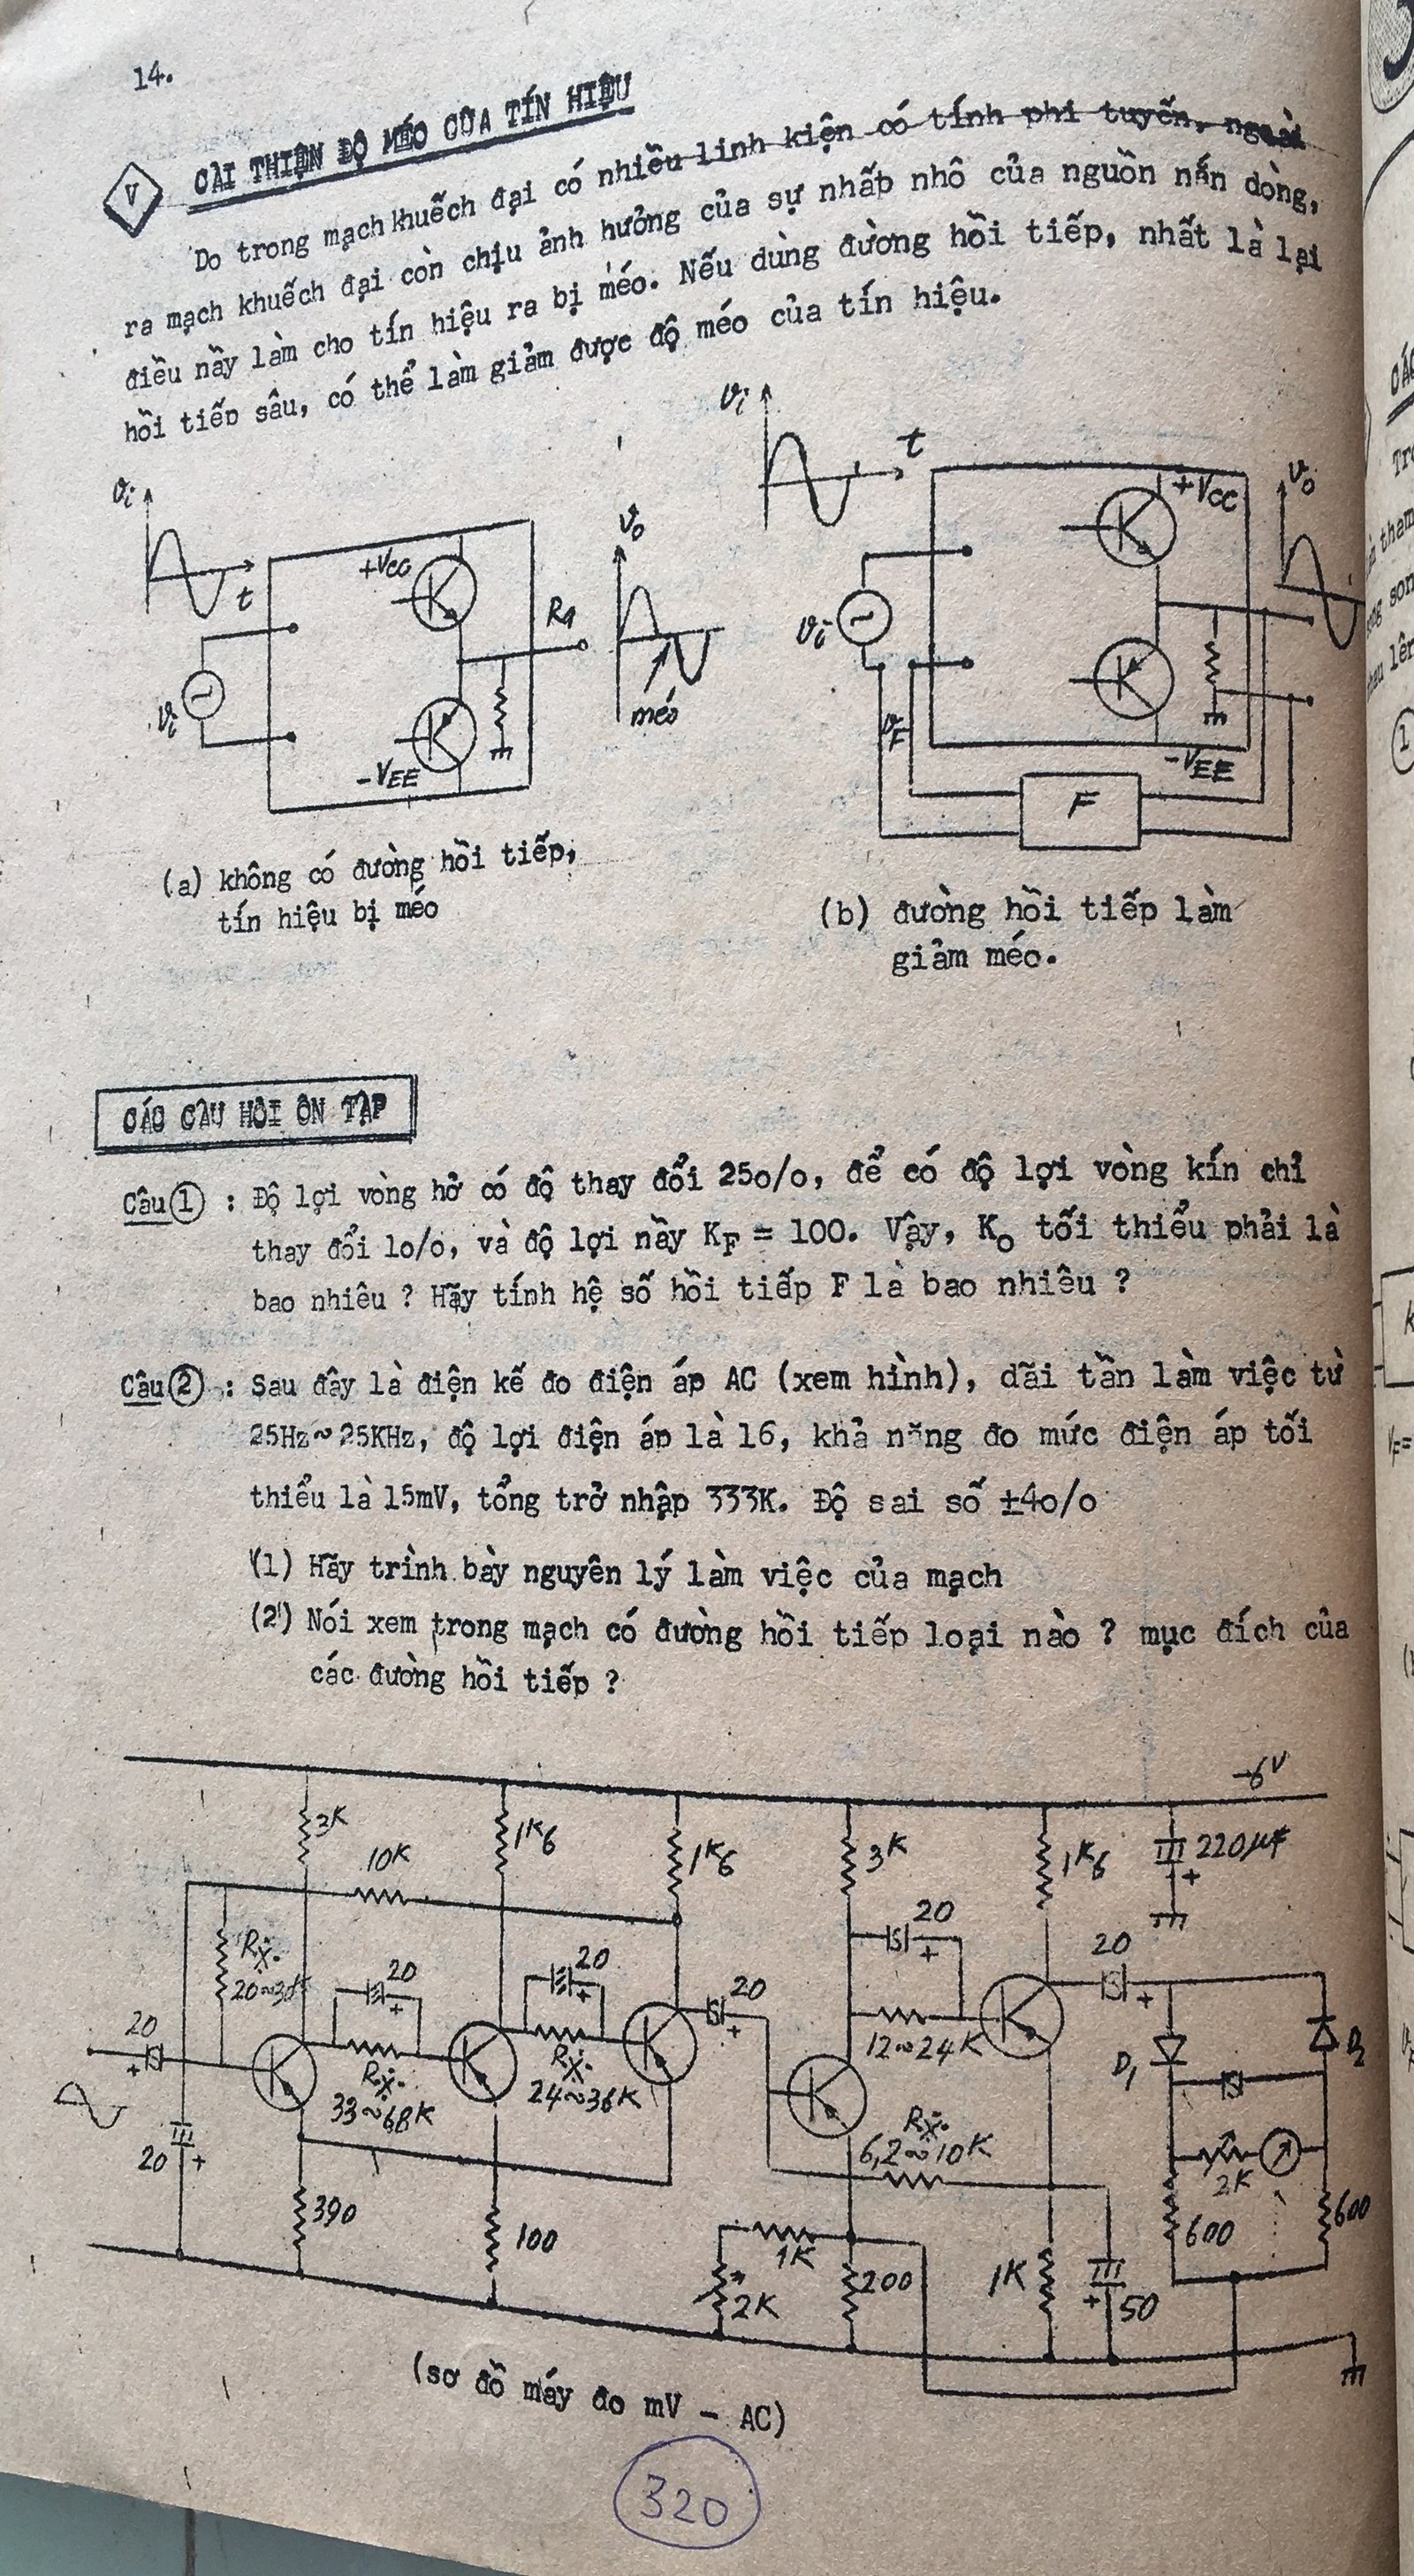 14.
V CẢI THIỆN ĐỘ MÉO CỦA TÍN HIỆU
Do trong mạch khuếch đại có nhiều linh kiện có tính phi tuyến, ngoài
ra mạch khuếch đại còn chịu ảnh hưởng của sự nhấp nhô của nguồn nắn dòng,
điều nầy làm cho tín hiệu ra bị méo. Nếu dùng đường hồi tiếp, nhất là lại
hồi tiếp sâu, có thể làm giảm được độ méo của tín hiệu.
vi t
vi
+VCC
-VEE
R1
vo
méo
vi t
vi
vF
+VCC
-VEE
F
vo
(a) không có đường hồi tiếp,
tín hiệu bị méo
(b) đường hồi tiếp làm
giảm méo.
CÁC CÂU HỎI ÔN TẬP
Câu 1 : Độ lợi vòng hở có độ thay đổi 25o/o, để có độ lợi vòng kín chỉ
thay đổi 1o/o, và độ lợi nầy KF = 100. Vậy, Ko tối thiểu phải là
bao nhiêu ? Hãy tính hệ số hồi tiếp F là bao nhiêu ?
Câu 2 : Sau đây là điện kế đo điện áp AC (xem hình), dãi tần làm việc từ
25Hz~25KHz, độ lợi điện áp là 16, khả năng đo mức điện áp tối
thiểu là 15mV, tổng trở nhập 333K. Độ sai số ±4o/o
(1) Hãy trình bày nguyên lý làm việc của mạch
(2) Nói xem trong mạch có đường hồi tiếp loại nào ? mục đích của
các đường hồi tiếp ?
-6V
3K
1K6
1K6
3K
1K6
220µF
+
10K
20
+
20
+
Rx
33~68K
20
+
Rx
24~36K
20
+
20
+
12~24K
20
+
D1
20
+
Rx
6,2~10K
2K
600
600
390
100
1K
2K
200
1K
50
+
(sơ đồ máy đo mV - AC)
320